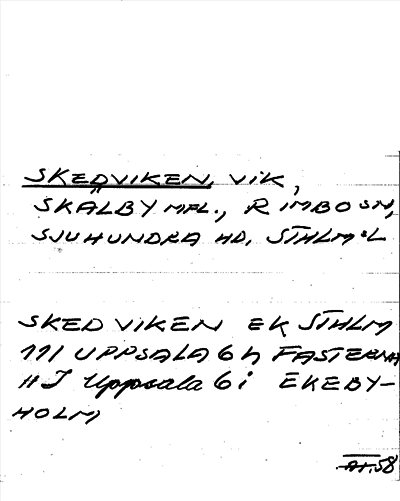 SKEDVIKEN, VIK,
SKALBY MFL., RIMBO SN,
SJUHUNDRA HD, STHLM:S L
SKEDVIKEN EK STHLM
111 UPPSALA 6 h FASTERNA
11 I Uppsala 6 i EKEBY-
HOLM